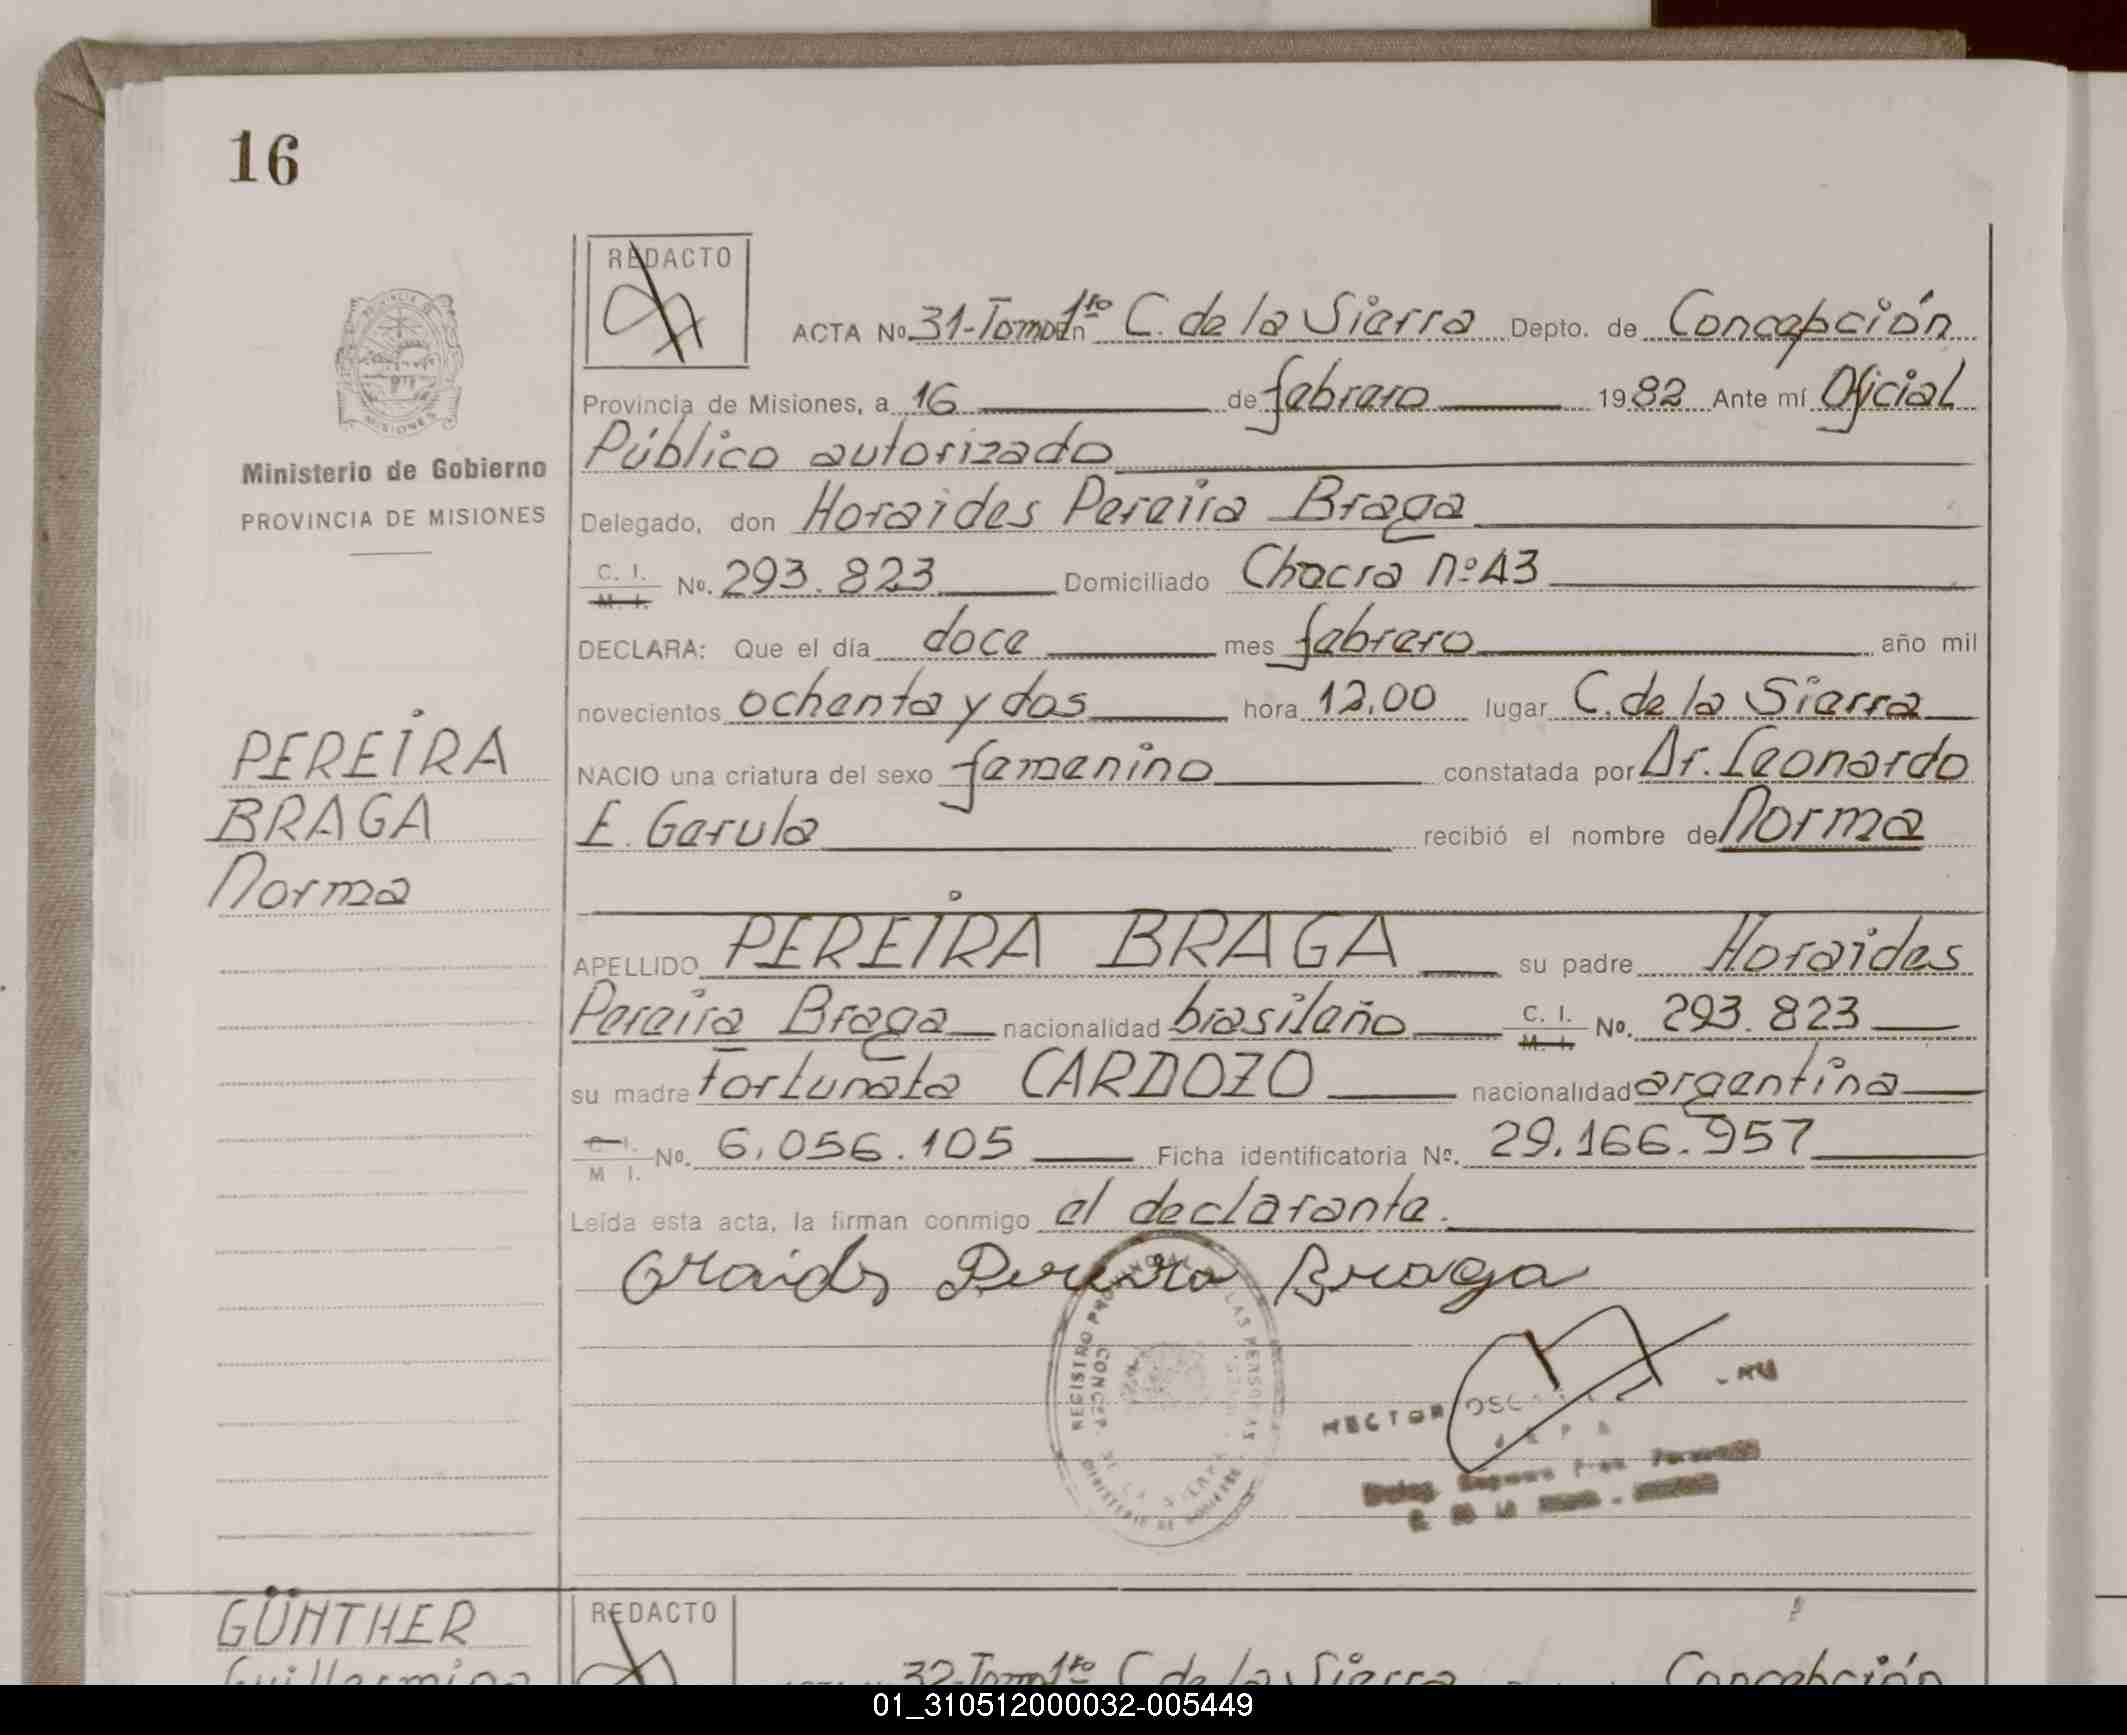 16
REDACTO
ACTA Nº 31-Tomo 1ro en C. de la Sierra Depto. de Concepción
Provincia de Misiones, a 16 de febrero 1982 Ante mí Oficial
Público autorizado
Ministerio de Gobierno
PROVINCIA DE MISIONES
Delegado, don Horaides Pereira Braga
C. I. M. I. Nº. 293.823 Domiciliado Chacra nº 43
DECLARA: Que el día doce mes febrero año mil
novecientos ochenta y dos hora 12.00 lugar C. de la Sierra
PEREIRA
BRAGA
Norma
NACIO una criatura del sexo femenino constatada por Dr. Leonardo
E. Garula recibió el nombre de Norma
APELLIDO PEREIRA BRAGA su padre Horaides
Pereira Braga nacionalidad brasileño C. I. M. I. Nº. 293.823
su madre Fortunata CARDOZO nacionalidad argentina
C. I. M. I. Nº. 6.056.105 Ficha identificatoria Nº. 29.166.957
Leída esta acta, la firman conmigo el declarante.
Oraides Pereira Braga
REGISTRO PROVINCIAL DE LAS PERSONAS
CONCEP. DE LA SIERRA
MINISTERIO DE GOBIERNO
HECTOR OSCAR
GÜNTHER
Guillermina
REDACTO
32-Tomo 1ro C. de la Sierra Concepción
01_310512000032-005449